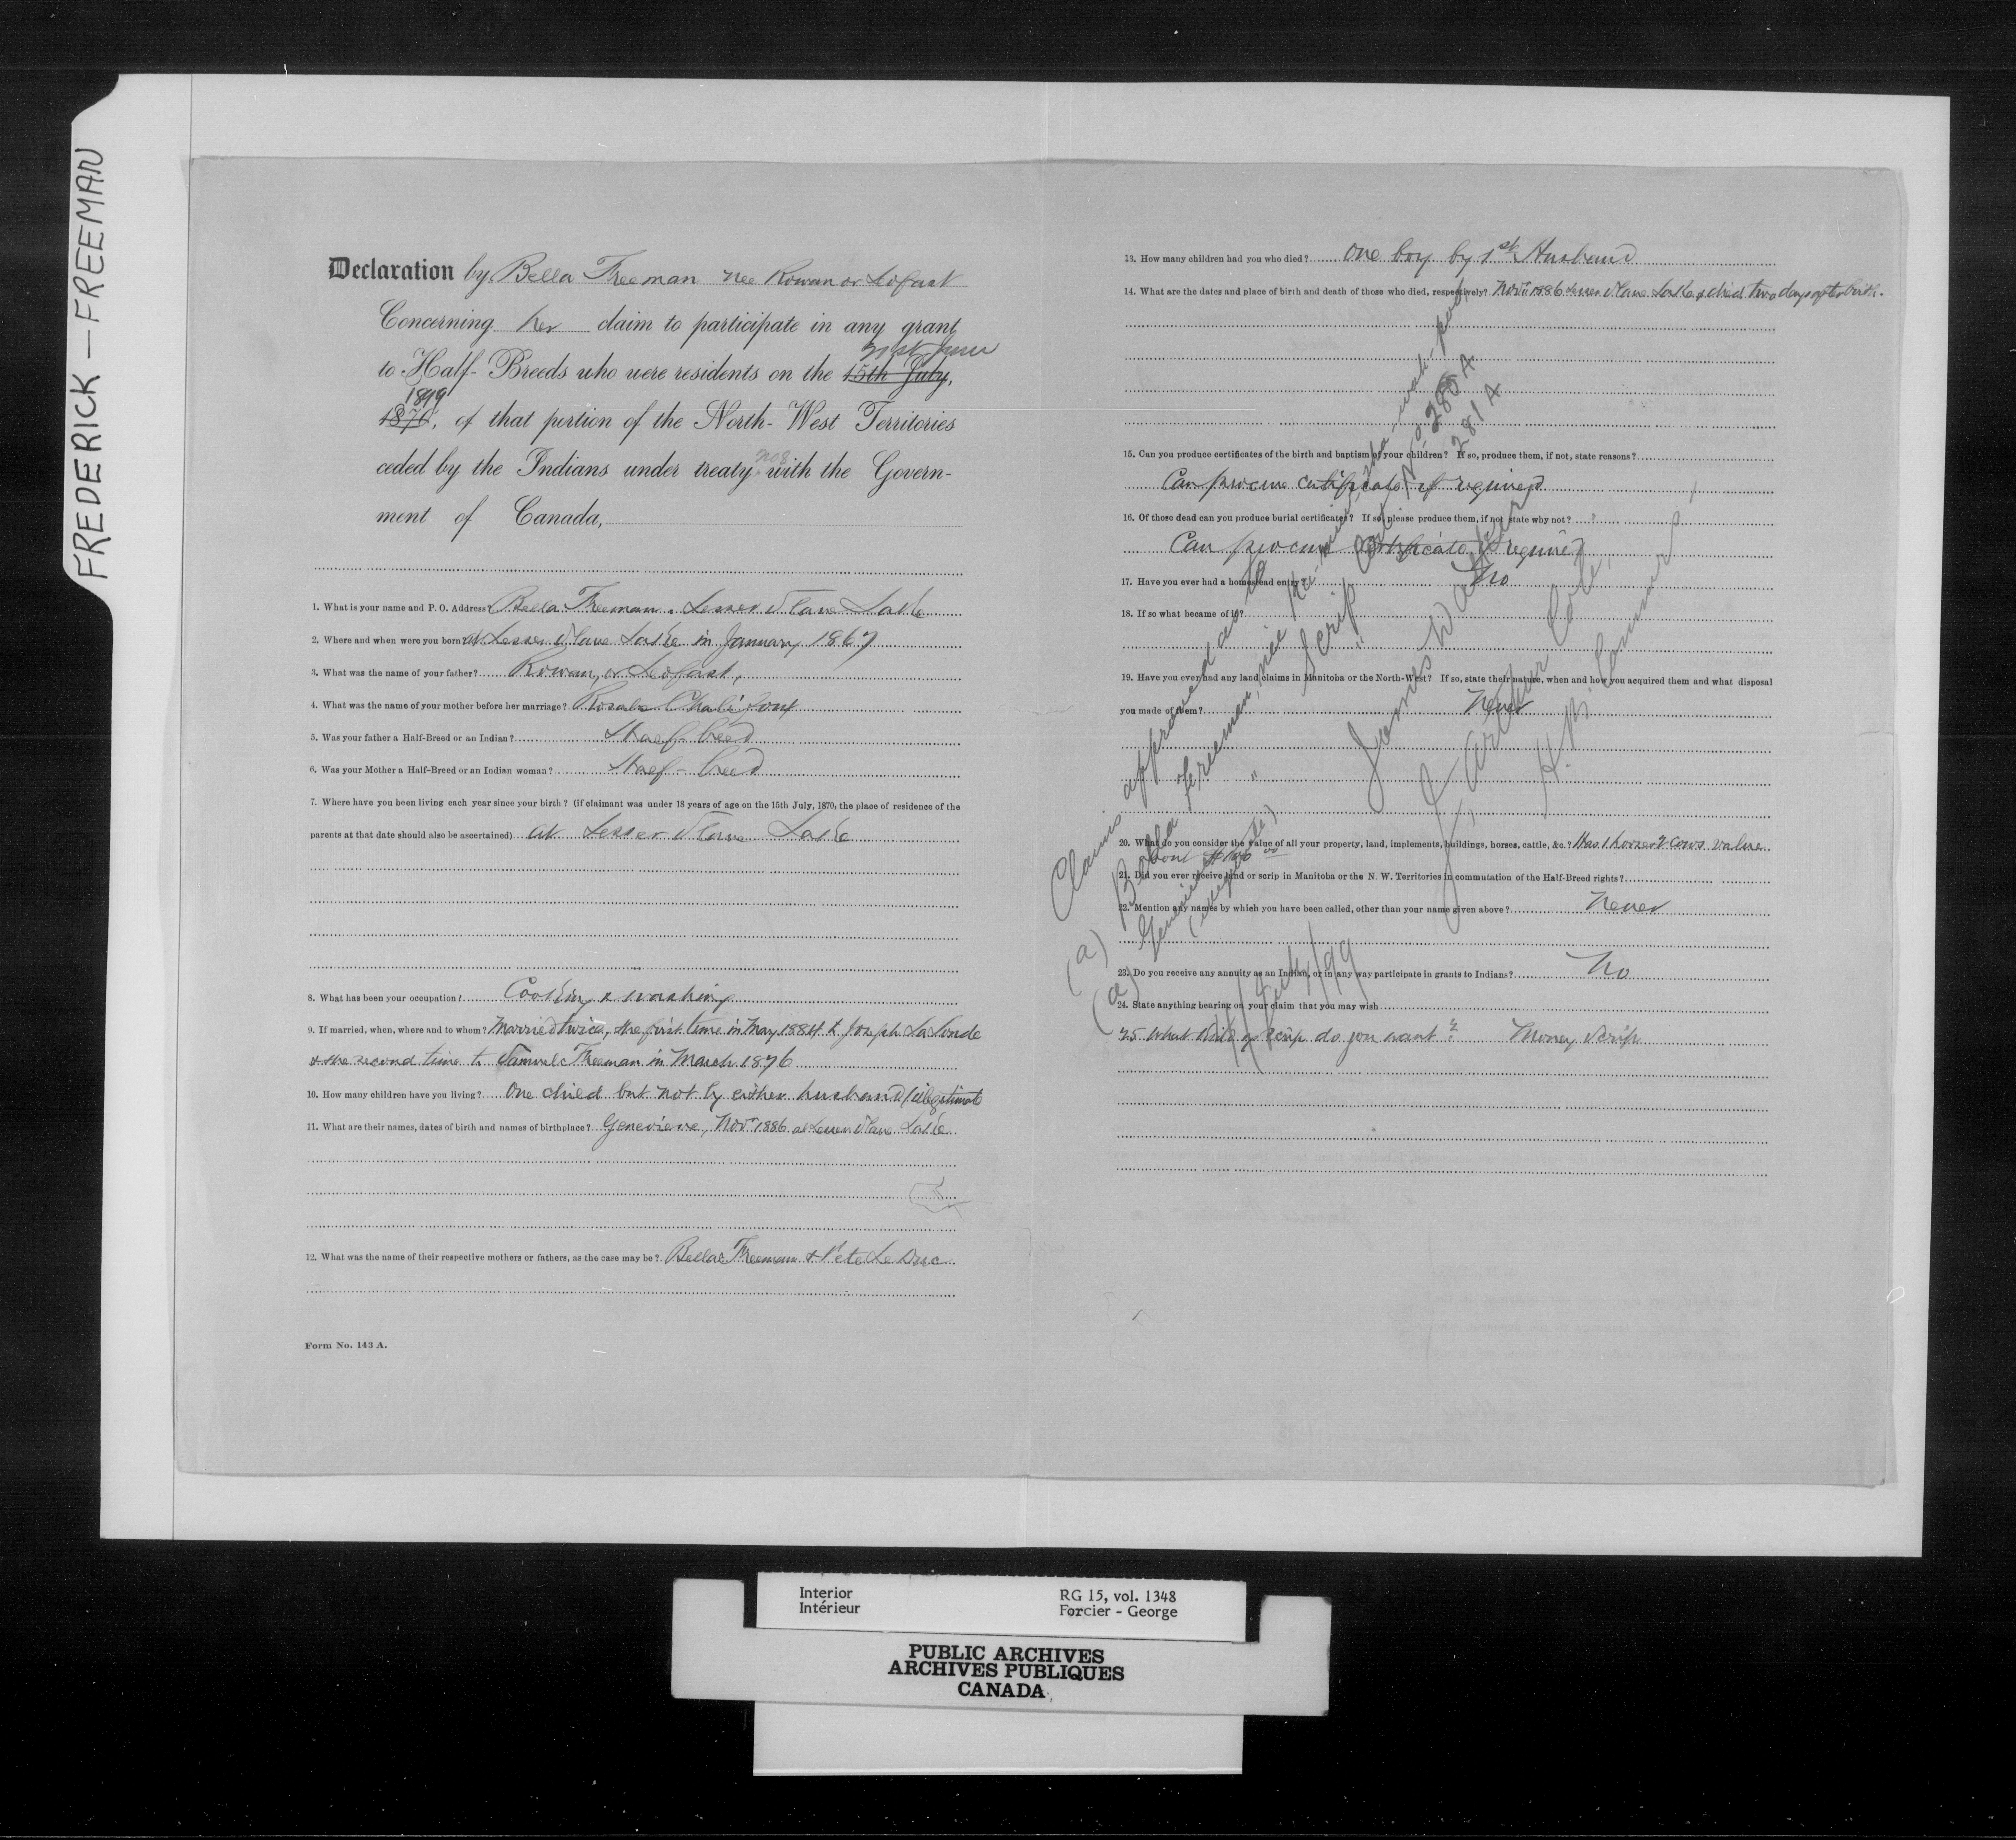 FREDERICK — FREEMAN
Declaration by Bella Freeman nee Rowan or Lofast
Concerning her claim to participate in any grant
to Half-Breeds who were residents on the 15th July,
1899
1870, of that portion of the North-West Territories
ceded by the Indians under treaty No 8 with the Govern-
ment of Canada,
1. What is your name and P. O. Address? Bella Freeman. Lesser Slave Lake
2. Where and when were you born? at Lesser Slave Lake in January 1867
3. What was the name of your father? Rowan, or Lofast,
4. What was the name of your mother before her marriage?
5. Was your father a Half-Breed or an Indian? Half-breed
6. Was your Mother a Half-Breed or an Indian woman? Half-breed
7. Where have you been living each year since your birth? (if claimant was under 18 years of age on the 15th July, 1870, the place of residence of the
parents at that date should also be ascertained) at Lesser Slave Lake
8. What has been your occupation? Cooking & washing
9. If married, when, where and to whom? Married twice, the first time in May 1884 to Joseph LaLonde
& the second time to Samuel Freeman in March 1896
10. How many children have you living? One child but not by either husband (illegitimate
11. What are their names, dates of birth and names of birthplace? Genevieve, Novr 1886 at Lesser Slave Lake
12. What was the name of their respective mothers or fathers, as the case may be? Bella Freeman & Pete Le Duc
Form No. 143 A.
13. How many children had you who died? One boy by 1st Husband
14. What are the dates and place of birth and death of those who died, respectively? Novr 1886 Lesser Slave Lake & died two days after birth.
15. Can you produce certificates of the birth and baptism of your children? If so, produce them, if not, state reasons?
Can procure certificate if required
16. Of those dead can you produce burial certificates? If so, please produce them, if not state why not?
Can procure certificate if required
17. Have you ever had a homestead entry? No
18. If so what became of it?
19. Have you ever had any land claims in Manitoba or the North-West? If so, state their nature, when and how you acquired them and what disposal
you made of them? Never
20. What do you consider the value of all your property, land, implements, buildings, horses, cattle, &c.? Has 1 horse & 2 cows value
about
21. Did you ever receive land or scrip in Manitoba or the N. W. Territories in commutation of the Half-Breed rights?
22. Mention any names by which you have been called, other than your name given above? Never
23. Do you receive any annuity as an Indian, or in any way participate in grants to Indians? No
24. State anything bearing on your claim that you may wish
25 What kind of scrip do you want? Money Scrip
Claims approved as to
(a) Bella Freeman, née
(a) Genevieve
(illegitimate)
Scrip Cert. No. 280 A
" " 281 A
James Walker
J. Arthur Coté,
H.B. Commrs
Interior
Intérieur
RG 15, vol. 1348
Forcier - George
PUBLIC ARCHIVES
ARCHIVES PUBLIQUES
CANADA